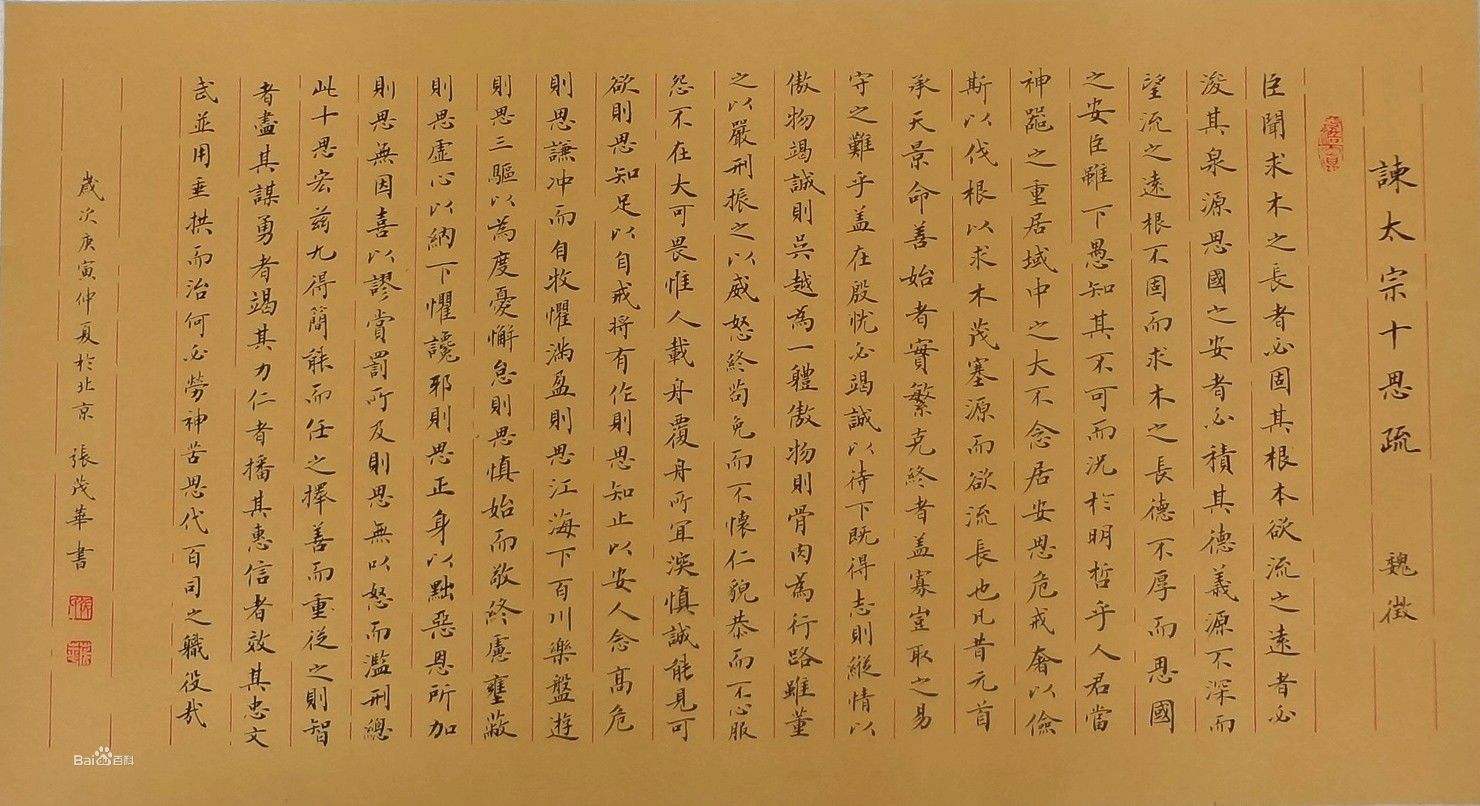 諫太宗十思疏 魏徵
臣聞求木之長者必固其根本欲流之遠者必
浚其泉源思國之安者必積其德義源不深而
望流之遠根不固而求木之長德不厚而思國
之安臣雖下愚知其不可而況於明哲乎人君當
神器之重居域中之大不念居安思危戒奢以儉
斯以伐根以求木茂塞源而欲流長也凡昔元首
承天景命善始者實繁克終者盖寡豈取之易
守之難乎盖在殷忧必竭誠以待下既得志則縱情以
傲物竭誠則吳越為一體傲物則骨肉為行路雖董
之以嚴刑振之以威怒終苟免而不懷仁貌恭而不心服
怨不在大可畏惟人載舟覆舟所宜深慎誠能見可
欲則思知足以自戒将有作則思知止以安人念高危
則思謙冲而自牧懼滿盈則思江海下百川樂盤遊
則思三驅以為度憂懈怠則思慎始而敬終慮壅蔽
則思虛心以納下懼讒邪則思正身以黜惡恩所加
則思無因喜以謬賞罰所及則思無以怒而濫刑總
此十思宏兹九得簡能而任之擇善而從之則智
者盡其謀勇者竭其力仁者播其惠信者效其忠文
武並用垂拱而治何必勞神苦思代百司之職役哉
歲次庚寅仲夏於北京 張茂華書
Bai百科